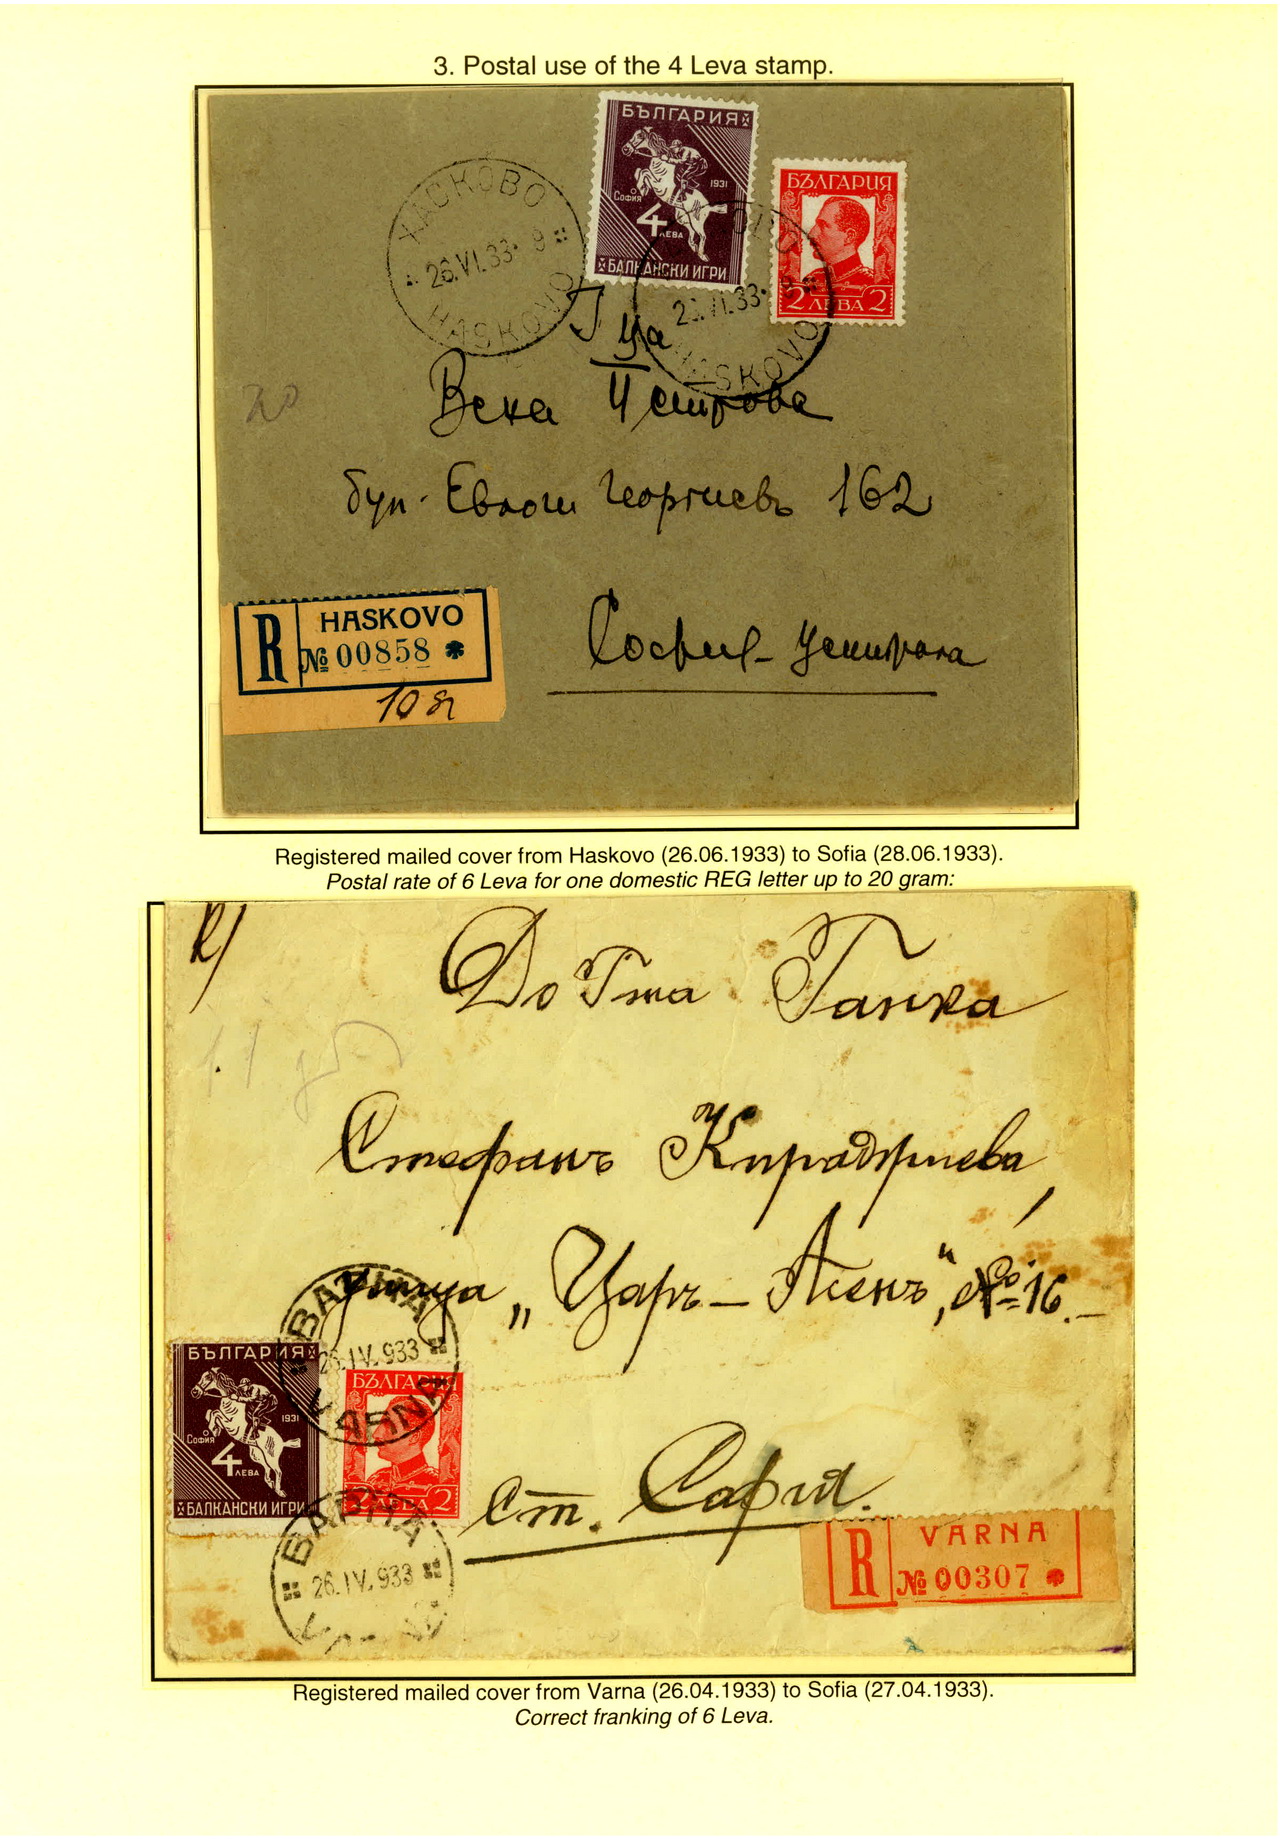 3. Postal use of the 4 Leva stamp.
БЪЛГАРИЯ
1931
СОФИЯ
4
ЛЕВА
БАЛКАНСКИ ИГРИ
БЪЛГАРИЯ
2 ЛЕВА 2
ХАСКОВО
26.VI.33 · 8
HASKOVO
VI.33
SKOVO
Г ца
Века Петрова
бул. Евлоги Георгиевъ 162
R HASKOVO
№ 00858
10 gr
София
Registered mailed cover from Haskovo (26.06.1933) to Sofia (28.06.1933).
Postal rate of 6 Leva for one domestic REG letter up to 20 gram:
R/
До Гжа Ганка
Стефанъ Кираджиева
улица „Царъ – Асенъ", № 16.
ВАРНА
26.IV.933
VARNA
БЪЛГАРИЯ
1931
СОФИЯ
4
ЛЕВА
БАЛКАНСКИ ИГРИ
БЪЛГАРИЯ
2 ЛЕВА 2
ст. София.
ВАРНА
26.IV.933
R VARNA
№ 00307
Registered mailed cover from Varna (26.04.1933) to Sofia (27.04.1933).
Correct franking of 6 Leva.